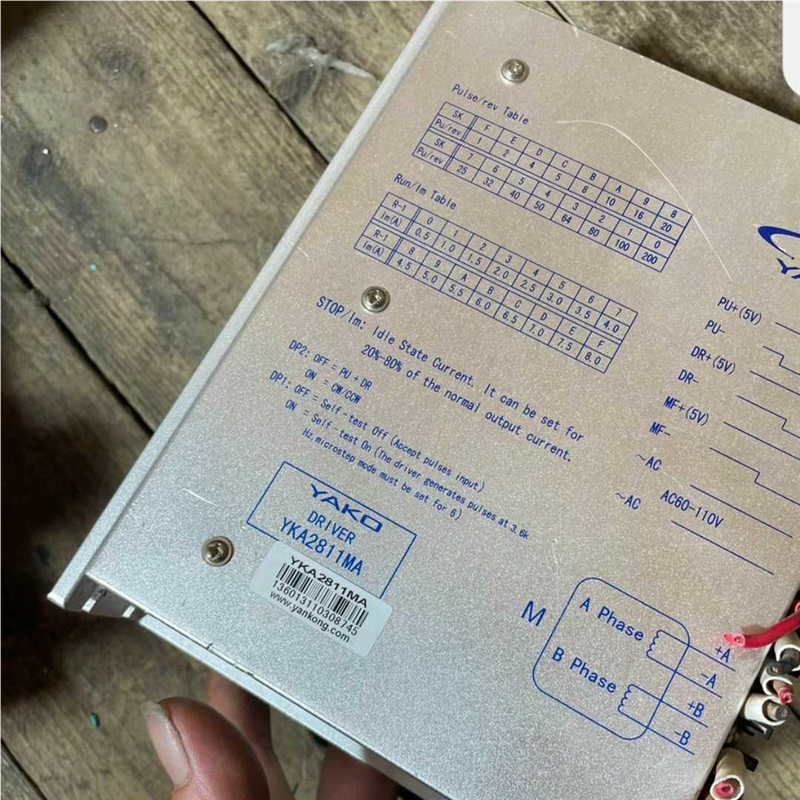 Pulse/rev Table
SK F E D C B A 9 8
Pu/rev 1 2 4 5 8 10 16 20
SK 7 6 5 4 3 2 1 0
Pu/rev 25 32 40 50 64 80 100 200
Run/Im Table
R-1 0 1 2 3 4 5 6 7
Im(A) 0.5 1.0 1.5 2.0 2.5 3.0 3.5 4.0
R-1 8 9 A B C D E F
Im(A) 4.5 5.0 5.5 6.0 6.5 7.0 7.5 8.0
STOP/Im: Idle State Current. It can be set for
20%-80% of the normal output current.
DP2: OFF = PU + DR
ON = CW/CCW
DP1: OFF = Self-test Off (Accept pulses input)
ON = Self-test On (The driver generates pulses at 3.6k
Hz microstep mode must be set for 6)
YAKO
DRIVER
YKA2811MA
YKA2811MA
136013110308745
www.yankong.com
PU+(5V)
PU-
DR+(5V)
DR-
MF+(5V)
MF-
~AC
AC60-110V
~AC
M
A Phase
B Phase
+A
-A
+B
-B